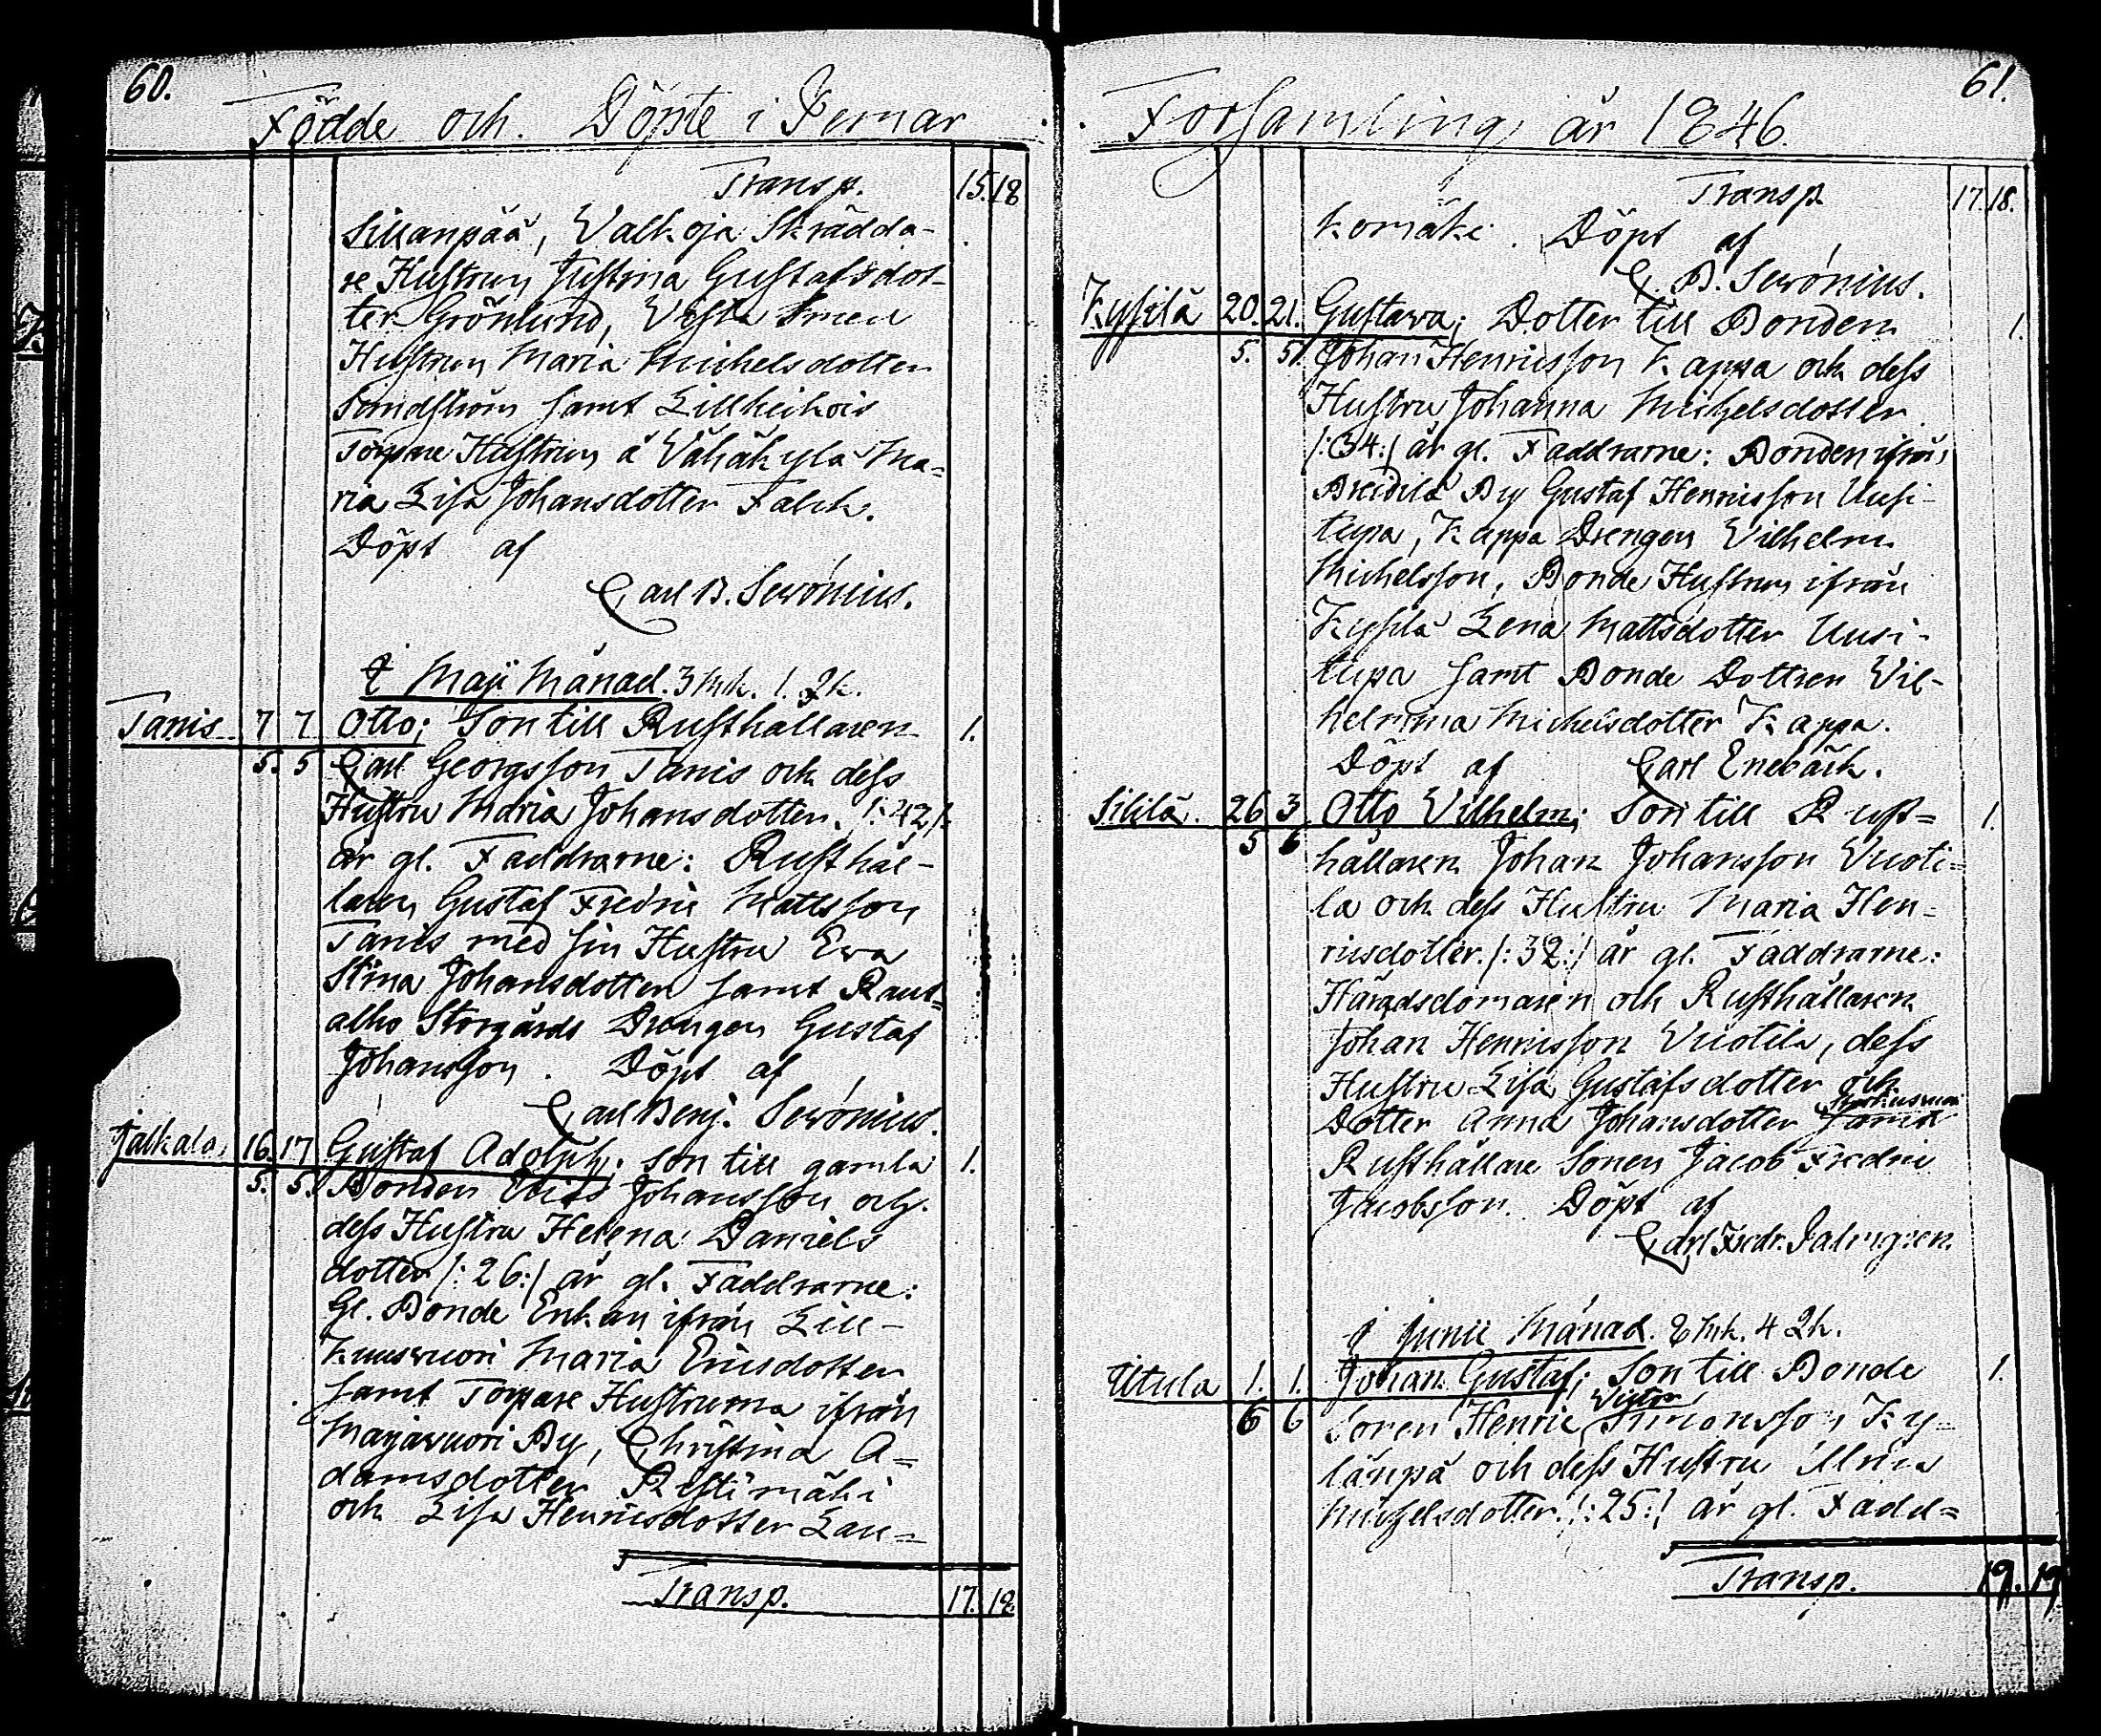 60.
Födde och Döpte i Pemar
Transp. 15. 18
Sillanpää, Walkoja Skrädda-
re Hustrun Justina Gustafsdot-
ter Grönlund, Vista
Hustrun Maria Michelsdotter
Sandström samt Lillheikois
Torpare Hustrun å Vähäkylä Ma-
ria Lisa Johansdotter Falck.
Döpt af
Carl B. Serónius.
I Maji Månad. 3 Mk. 1. 2k.
Tanis 7 7 Otto; Son till Rusthållaren 1.
5. 5 Carl Georgsson Tanis och dess
Hustru Maria Johansdotter. /: 42 /:
år gl. Faddrarne: Rusthål-
laren Gustaf Fredric Mattsson
Tanis med sin Hustru Ewa
Stina Johansdotter samt Raut-
alho Storgårds Drengen Gustaf
Johansson. Döpt af
Carl Benj. Serónius.
Jalkala, 16. 17 Gustaf Adolph; son till gamla 1.
5. 5. Bonden Johansson och
dess Hustru Helena Daniels
dotter /: 26:/ år gl. Faddrarne:
Gl. Bonde Enkan ifrån Lill-
Kuusvuori Maria Ericsdotter
samt Torpare Hustrurna ifrån
Mayavuori By, Christina A=
damsdotter Ristimäki
och Lisa Henricsdotter Lau=
Transp. 17. 18.
61.
Församling år 1846.
Transp. 17. 18.
komäki. Döpt af
C. B. Serónius.
Kysilä 20. 21. Gustava; Dotter till Bonden 1.
5. 5. Johan Henricsson Kappa och dess
Hustru Johanna Michelsdotter
/:34:/ år gl. Faddrarne: Bonden ifrån
By Gustaf Henricsson Uusi-
tupa, Kappa Drengen Vilhelm
Michelsson, Bonde Hustrun ifrån
Kysilä Lena Mattsdotter Uusi-
tupa samt Bonde Dottren Vil-
helmina Michelsdotter Kappa.
Döpt af Carl Enebäck.
Sililä. 26 3 Otto Vilhelm; Son till Rust= 1.
5 6 hållaren Johan Johansson Vuoti=
la och dess Hustru Maria Hen=
ricsdotter. /:32:/ år gl. Faddrarne:
Häradsdomaren och Rusthållaren
Johan Henricsson Vuotila, dess
Hustru Lisa Gustafsdotter och
Dotter Anna Johansdotter samt
Rusthållare Sonen Jacob Fredric
Jacobsson. Döpt af
Carl Fredr. Palmgren.
I Junii Månad. 8 Mk. 4 2k.
Utula 1. 1. Johan Gustaf; Son till Bonde 1.
6 6 Sonen Henric Victor Simonsson Ky=
länpä och dess Hustru Ulrica
Michelsdotter. /:25:/ år gl. Fadd=
Transp. 19. 19.